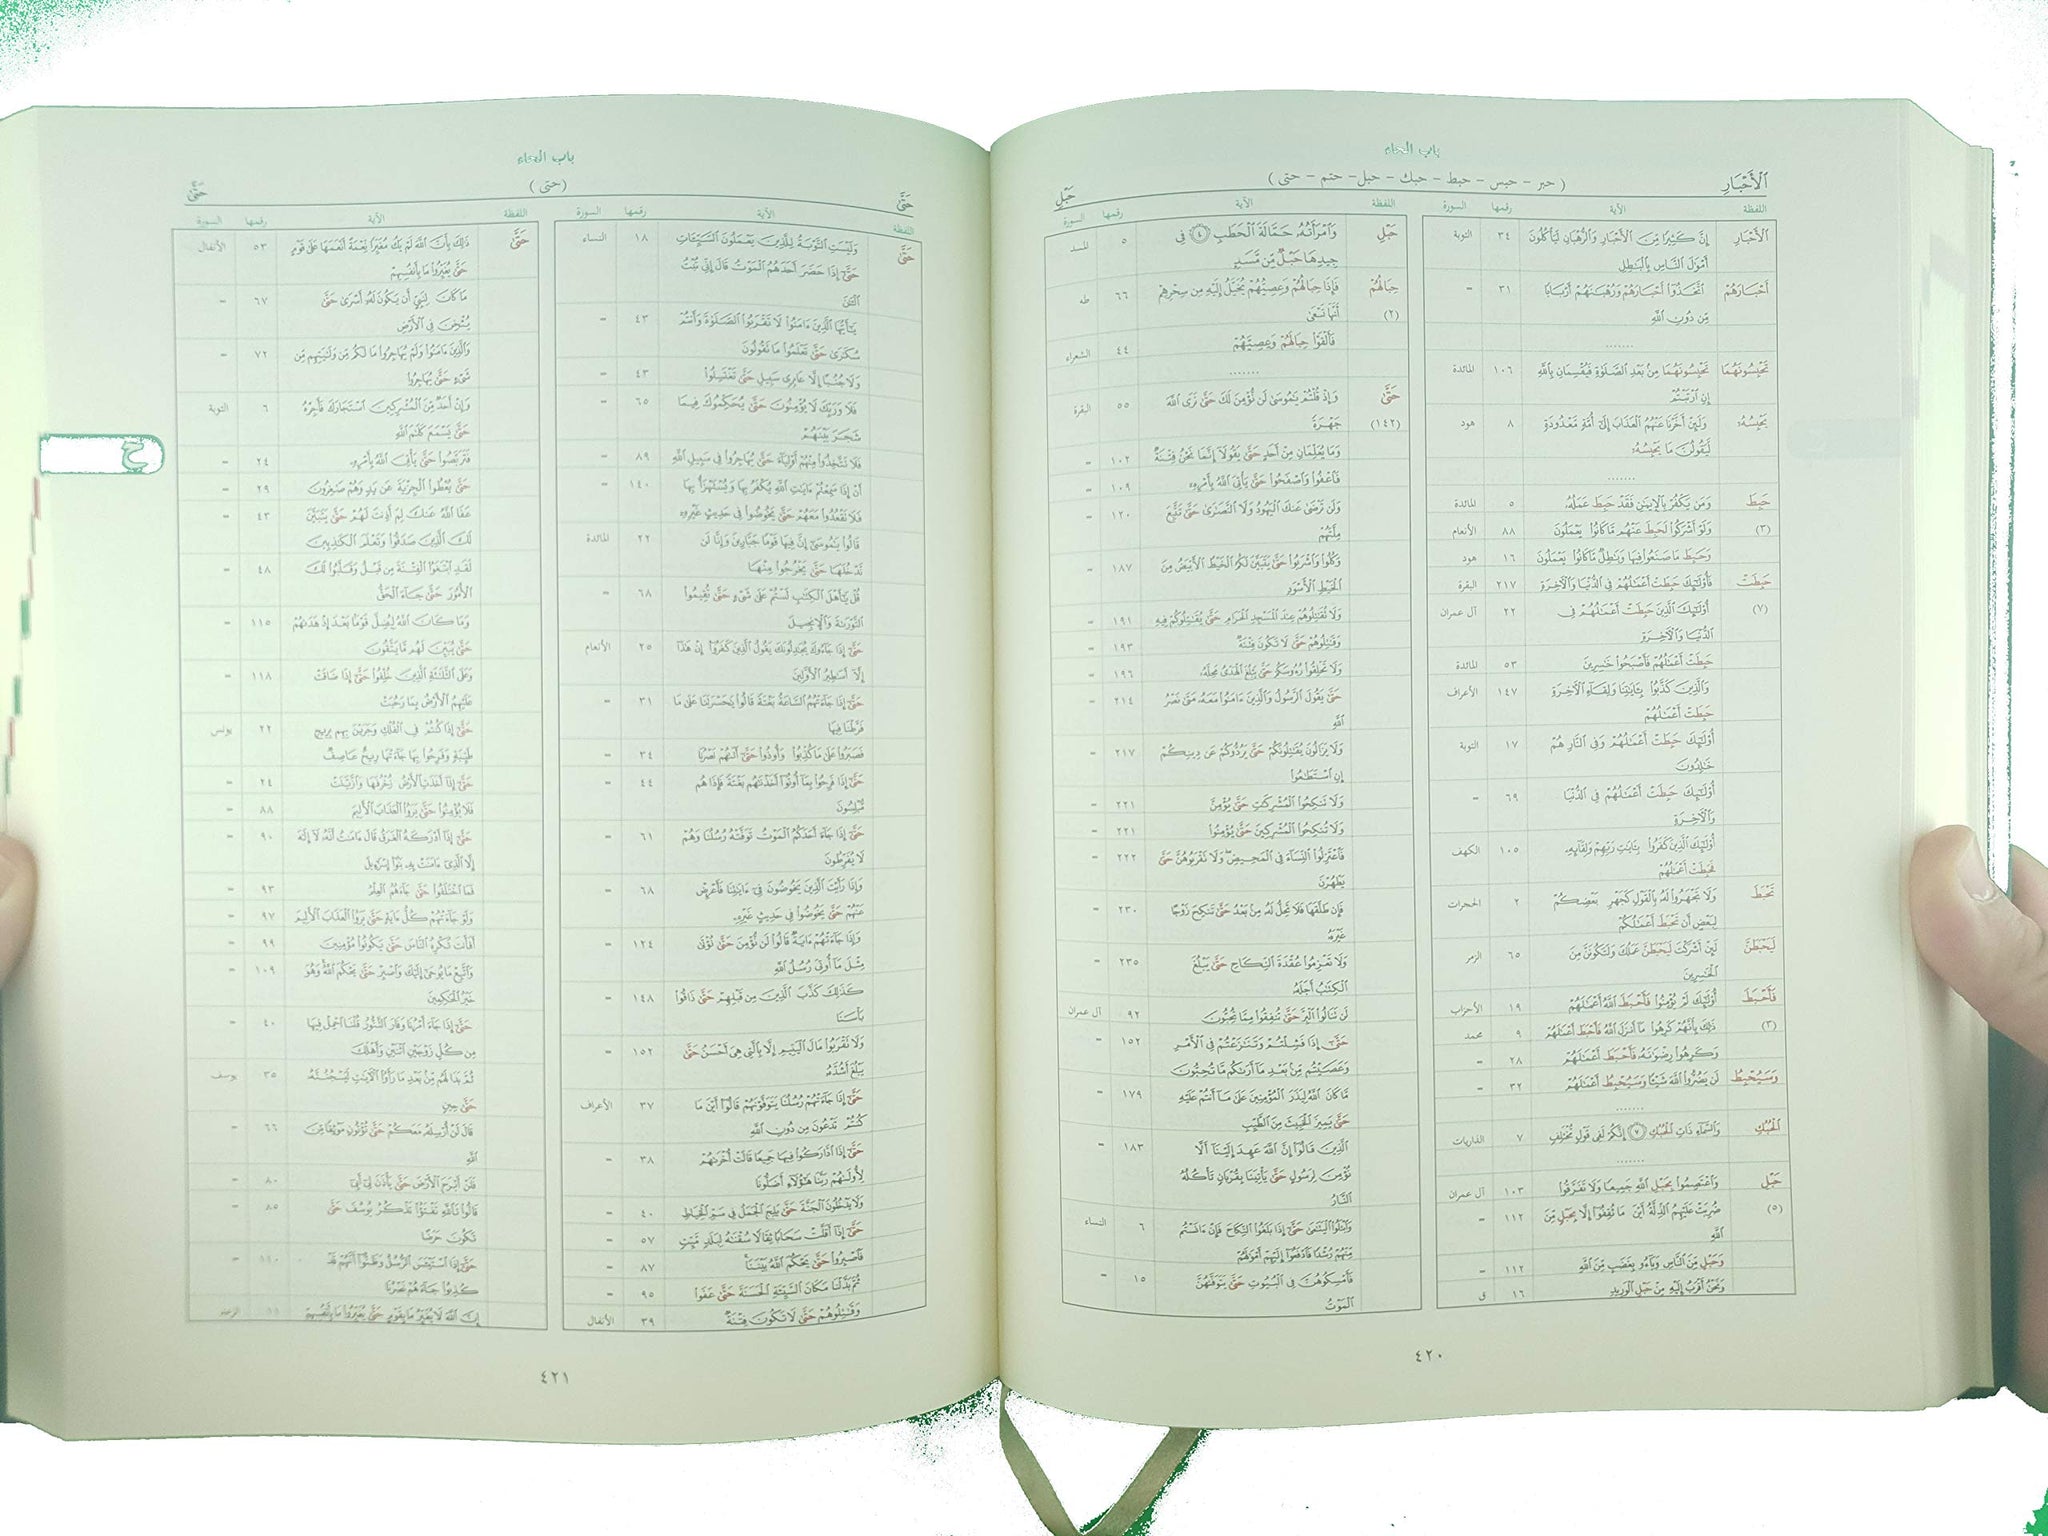 باب الحاء
الأحبار
( حبر – حبس – حبط – حبك – حبل – حتم – حتى )
حبل
اللفظة الآية رقمها السورة
الأحبار إن كثيرا من الأحبار والرهبان ليأكلون ٣٤ التوبة
أموال الناس بالباطل
أحبارهم اتخذوا أحبارهم ورهبانهم أربابا ٣١ =
من دون الله
.......
تحبسونهما تحبسونهما من بعد الصلاة فيقسمان بالله ١٠٦ المائدة
إن ارتبتم
يحبسه ولئن أخرنا عنهم العذاب إلى أمة معدودة ٨ هود
ليقولن ما يحبسه
.......
حبط ومن يكفر بالإيمان فقد حبط عمله ٥ المائدة
(٣) ولو أشركوا لحبط عنهم ما كانوا يعملون ٨٨ الأنعام
وحبط ما صنعوا فيها وباطل ما كانوا يعملون ١٦ هود
حبطت فأولئك حبطت أعمالهم في الدنيا والآخرة ٢١٧ البقرة
(٧) أولئك الذين حبطت أعمالهم في ٢٢ آل عمران
الدنيا والآخرة
حبطت أعمالهم فأصبحوا خاسرين ٥٣ المائدة
والذين كذبوا بآياتنا ولقاء الآخرة ١٤٧ الأعراف
حبطت أعمالهم
أولئك حبطت أعمالهم وفي النار هم ١٧ التوبة
خالدون
أولئك حبطت أعمالهم في الدنيا ٦٩ =
والآخرة
أولئك الذين كفروا بآيات ربهم ولقائه ١٠٥ الكهف
فحبطت أعمالهم
تحبط ولا تجهروا له بالقول كجهر بعضكم ٢ الحجرات
لبعض أن تحبط أعمالكم
ليحبطن لئن أشركت ليحبطن عملك ولتكونن من ٦٥ الزمر
الخاسرين
فأحبط أولئك لم يؤمنوا فأحبط الله أعمالهم ١٩ الأحزاب
(٣) ذلك بأنهم كرهوا ما أنزل الله فأحبط أعمالهم ٩ محمد
وكرهوا رضوانه فأحبط أعمالهم ٢٨ =
وسيحبط لن يضروا الله شيئا وسيحبط أعمالهم ٣٢ =
.......
الحبك والسماء ذات الحبك ٧ إنكم لفي قول مختلف ٧ الذاريات
.......
حبل واعتصموا بحبل الله جميعا ولا تفرقوا ١٠٣ آل عمران
(٥) ضربت عليهم الذلة أين ما ثقفوا إلا بحبل من ١١٢ =
الله
وحبل من الناس وباءو بغضب من الله ١١٢ =
ونحن أقرب إليه من حبل الوريد ١٦ ق
اللفظة الآية رقمها السورة
حبل وامرأته حمالة الحطب ٤ في ٥ المسد
جيدها حبل من مسد
حبالهم فإذا حبالهم وعصيهم يخيل إليه من سحرهم ٦٦ طه
(٢) أنها تسعى
فألقوا حبالهم وعصيهم ٤٤ الشعراء
.......
حتى وإذ قلتم يا موسى لن نؤمن لك حتى نرى الله ٥٥ البقرة
(١٤٢) جهرة
وما يعلمان من أحد حتى يقولا إنما نحن فتنة ١٠٢ =
فاعفوا واصفحوا حتى يأتي الله بأمره ١٠٩ =
ولن ترضى عنك اليهود ولا النصارى حتى تتبع ١٢٠ =
ملتهم
وكلوا واشربوا حتى يتبين لكم الخيط الأبيض من ١٨٧ =
الخيط الأسود
ولا تقاتلوهم عند المسجد الحرام حتى يقاتلوكم فيه ١٩١ =
وقاتلوهم حتى لا تكون فتنة ١٩٣ =
ولا تحلقوا رءوسكم حتى يبلغ الهدي محله ١٩٦ =
حتى يقول الرسول والذين آمنوا معه متى نصر ٢١٤ =
الله
ولا يزالون يقاتلونكم حتى يردوكم عن دينكم ٢١٧ =
إن استطاعوا
ولا تنكحوا المشركات حتى يؤمن ٢٢١ =
ولا تنكحوا المشركين حتى يؤمنوا ٢٢١ =
فاعتزلوا النساء في المحيض ولا تقربوهن حتى ٢٢٢ =
يطهرن
فإن طلقها فلا تحل له من بعد حتى تنكح زوجا ٢٣٠ =
غيره
ولا تعزموا عقدة النكاح حتى يبلغ ٢٣٥ =
الكتاب أجله
لن تنالوا البر حتى تنفقوا مما تحبون ٩٢ آل عمران
حتى إذا فشلتم وتنازعتم في الأمر ١٥٢ =
وعصيتم من بعد ما أراكم ما تحبون
ما كان الله ليذر المؤمنين على ما أنتم عليه ١٧٩ =
حتى يميز الخبيث من الطيب
الذين قالوا إن الله عهد إلينا ألا ١٨٣ =
نؤمن لرسول حتى يأتينا بقربان تأكله
النار
وابتلوا اليتامى حتى إذا بلغوا النكاح فإن آنستم ٦ النساء
منهم رشدا فادفعوا إليهم أموالهم
فأمسكوهن في البيوت حتى يتوفاهن ١٥ =
الموت
٤٢٠
باب الحاء
حتى
( حتى )
حتى
اللفظة الآية رقمها السورة
حتى وليست التوبة للذين يعملون السيئات ١٨ النساء
حتى إذا حضر أحدهم الموت قال إني تبت
الآن
يا أيها الذين آمنوا لا تقربوا الصلاة وأنتم ٤٣ =
سكارى حتى تعلموا ما تقولون
ولا جنبا إلا عابري سبيل حتى تغتسلوا ٤٣ =
فلا وربك لا يؤمنون حتى يحكموك فيما ٦٥ =
شجر بينهم
فلا تتخذوا منهم أولياء حتى يهاجروا في سبيل الله ٨٩ =
أن إذا سمعتم آيات الله يكفر بها ويستهزأ بها ١٤٠ =
فلا تقعدوا معهم حتى يخوضوا في حديث غيره
قالوا يا موسى إن فيها قوما جبارين وإنا لن ٢٢ المائدة
ندخلها حتى يخرجوا منها
قل يا أهل الكتاب لستم على شيء حتى تقيموا ٦٨ =
التوراة والإنجيل
حتى إذا جاءوك يجادلونك يقول الذين كفروا إن هذا ٢٥ الأنعام
إلا أساطير الأولين
حتى إذا جاءتهم الساعة بغتة قالوا يا حسرتنا على ما ٣١ =
فرطنا فيها
فصبروا على ما كذبوا وأوذوا حتى أتاهم نصرنا ٣٤ =
حتى إذا فرحوا بما أوتوا أخذناهم بغتة فإذا هم ٤٤ =
مبلسون
حتى إذا جاء أحدكم الموت توفته رسلنا وهم ٦١ =
لا يفرطون
وإذا رأيت الذين يخوضون في آياتنا فأعرض ٦٨ =
عنهم حتى يخوضوا في حديث غيره
وإذا جاءتهم آية قالوا لن نؤمن حتى نؤتى ١٢٤ =
مثل ما أوتي رسل الله
كذلك كذب الذين من قبلهم حتى ذاقوا ١٤٨ =
بأسنا
ولا تقربوا مال اليتيم إلا بالتي هي أحسن حتى ١٥٢ =
يبلغ أشده
حتى إذا جاءتهم رسلنا يتوفونهم قالوا أين ما ٣٧ الأعراف
كنتم تدعون من دون الله
حتى إذا اداركوا فيها جميعا قالت أخراهم ٣٨ =
لأولاهم ربنا هؤلاء أضلونا
ولا يدخلون الجنة حتى يلج الجمل في سم الخياط ٤٠ =
حتى إذا أقلت سحابا ثقالا سقناه لبلد ميت ٥٧ =
فاصبروا حتى يحكم الله بيننا ٨٧ =
ثم بدلنا مكان السيئة الحسنة حتى عفوا ٩٥ =
وقاتلوهم حتى لا تكون فتنة ٣٩ الأنفال
اللفظة الآية رقمها السورة
حتى ذلك بأن الله لم يك مغيرا نعمة أنعمها على قوم ٥٣ الأنفال
حتى يغيروا ما بأنفسهم
ما كان لنبي أن يكون له أسرى حتى ٦٧ =
يثخن في الأرض
والذين آمنوا ولم يهاجروا ما لكم من ولايتهم من ٧٢ =
شيء حتى يهاجروا
وإن أحد من المشركين استجارك فأجره ٦ التوبة
حتى يسمع كلام الله
فتربصوا حتى يأتي الله بأمره ٢٤ =
حتى يعطوا الجزية عن يد وهم صاغرون ٢٩ =
عفا الله عنك لم أذنت لهم حتى يتبين ٤٣ =
لك الذين صدقوا وتعلم الكاذبين
لقد ابتغوا الفتنة من قبل وقلبوا لك ٤٨ =
الأمور حتى جاء الحق
وما كان الله ليضل قوما بعد إذ هداهم ١١٥ =
حتى يبين لهم ما يتقون
وعلى الثلاثة الذين خلفوا حتى إذا ضاقت ١١٨ =
عليهم الأرض بما رحبت
حتى إذا كنتم في الفلك وجرين بهم بريح ٢٢ يونس
طيبة وفرحوا بها جاءتها ريح عاصف
حتى إذا أخذت الأرض زخرفها وازينت ٢٤ =
فلا يؤمنوا حتى يروا العذاب الأليم ٨٨ =
حتى إذا أدركه الغرق قال آمنت أنه لا إله ٩٠ =
إلا الذي آمنت به بنو إسرائيل
فما اختلفوا حتى جاءهم العلم ٩٣ =
ولو جاءتهم كل آية حتى يروا العذاب الأليم ٩٧ =
أفأنت تكره الناس حتى يكونوا مؤمنين ٩٩ =
واتبع ما يوحى إليك واصبر حتى يحكم الله وهو ١٠٩ =
خير الحاكمين
حتى إذا جاء أمرنا وفار التنور قلنا احمل فيها ٤٠ =
من كل زوجين اثنين وأهلك
ثم بدا لهم من بعد ما رأوا الآيات ليسجننه ٣٥ يوسف
حتى حين
قال لن أرسله معكم حتى تؤتون موثقا من ٦٦ =
الله
فلن أبرح الأرض حتى يأذن لي أبي ٨٠ =
قالوا تالله تفتأ تذكر يوسف حتى ٨٥ =
تكون حرضا
حتى إذا استيئس الرسل وظنوا أنهم قد ١١٠ =
كذبوا جاءهم نصرنا
إن الله لا يغير ما بقوم حتى يغيروا ما بأنفسهم ١١ الرعد
٤٢١
ح